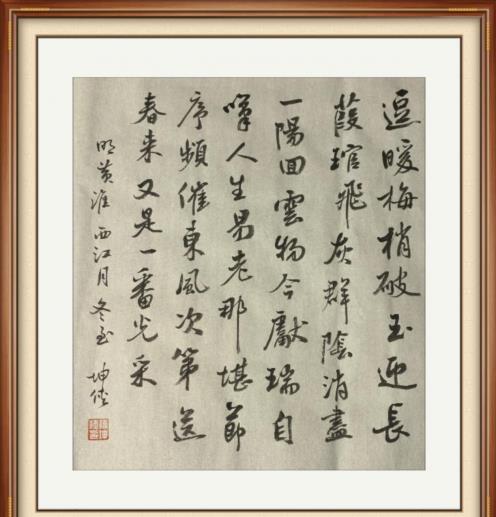 逗暖梅梢破玉迎長
葭琯飛灰群陰消盡
一陽回雲物今獻瑞自
嘆人生易老那堪節
序頻催東風次第送
春来又是一番光采
明黄淮西江月冬至 坤